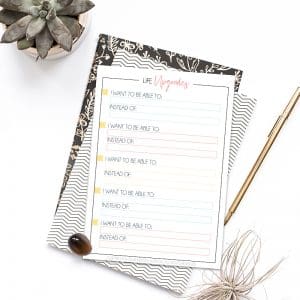 LIFE Upgrades
I WANT TO BE ABLE TO:
INSTEAD OF:
I WANT TO BE ABLE TO:
INSTEAD OF:
I WANT TO BE ABLE TO:
INSTEAD OF:
I WANT TO BE ABLE TO:
INSTEAD OF:
I WANT TO BE ABLE TO:
INSTEAD OF: